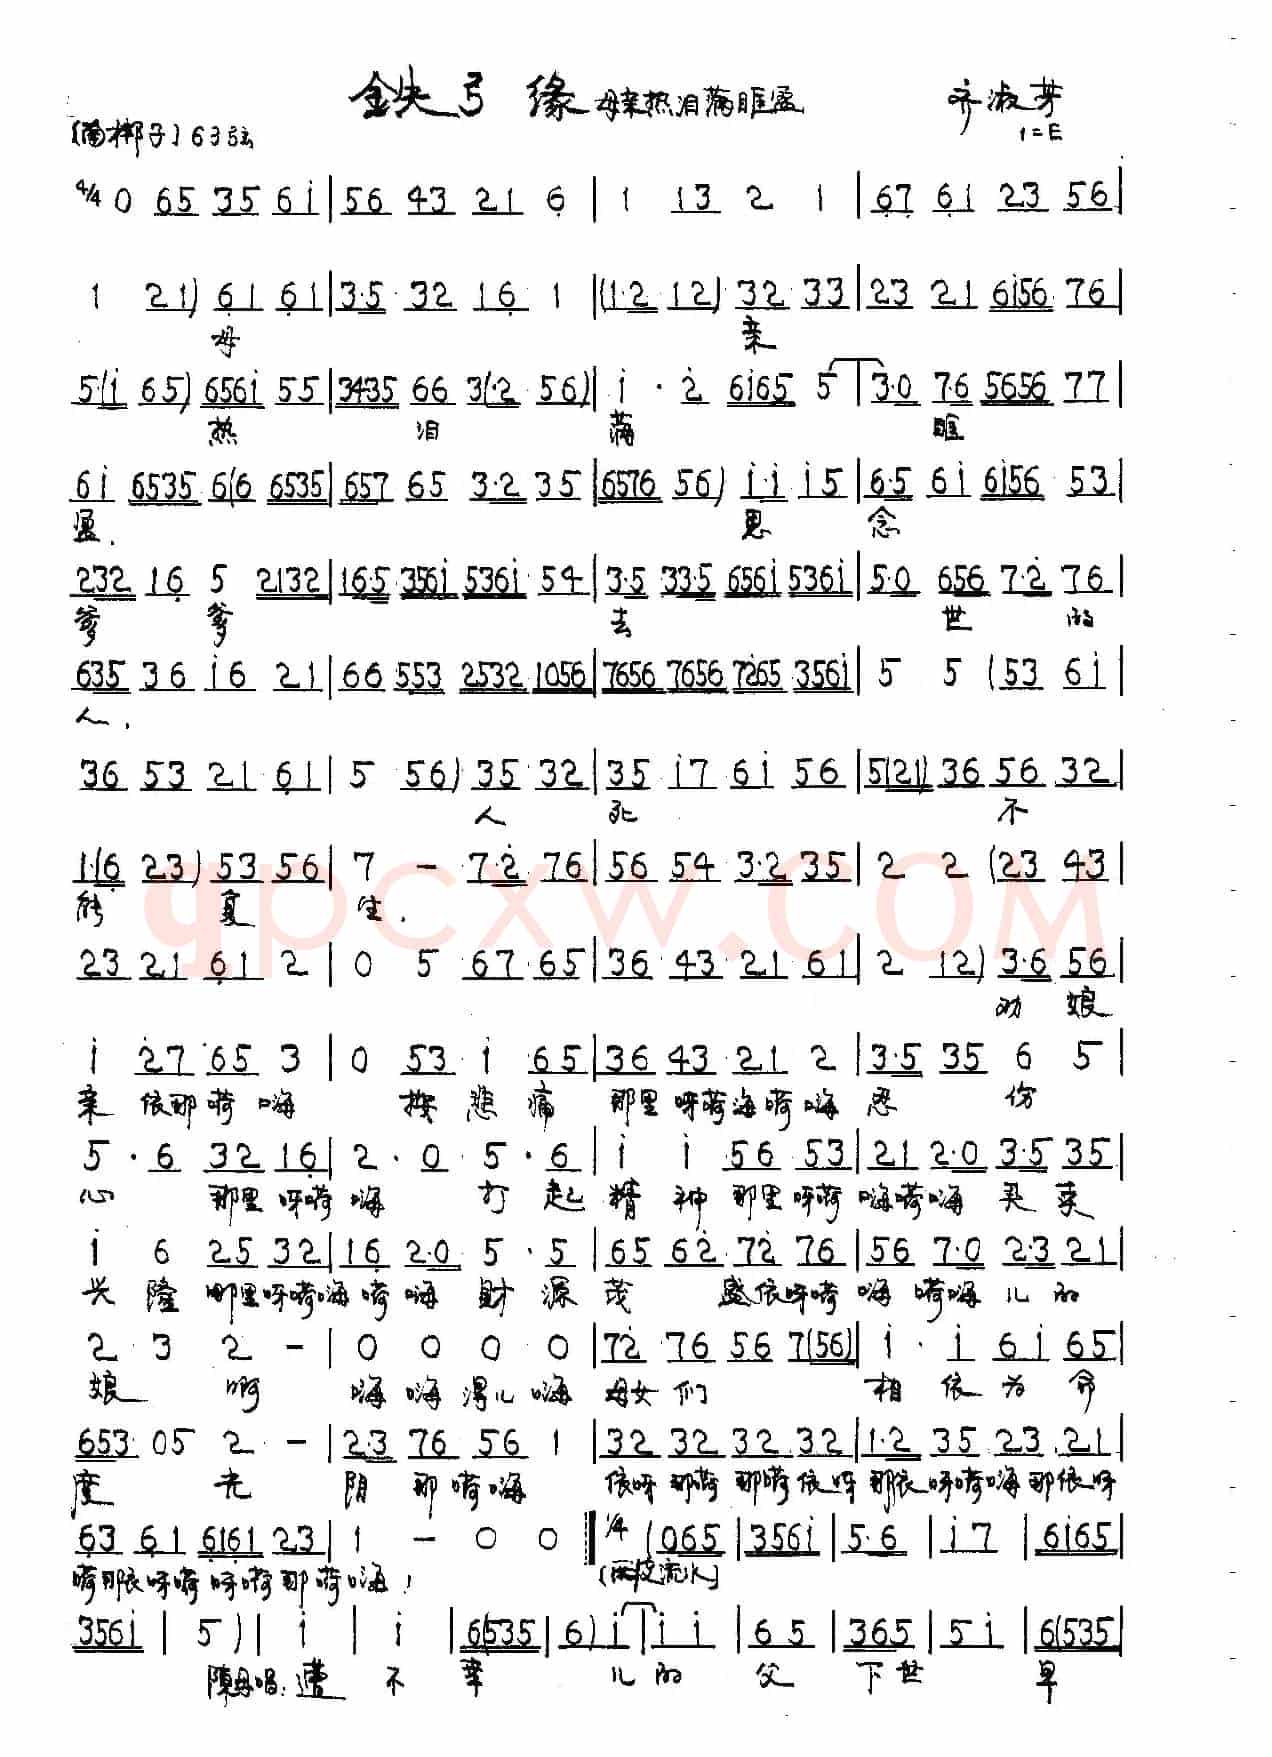 鉄弓缘 母亲热泪满眶盈 齐淑芳
(南梆子) 63弦 1=E
4/4 0 65 35 6i | 56 43 21 6 | 1 13 2 1 | 67 61 23 56 |
1 21) 61 61 | 3·5 32 16 1 | (1·2 12) 32 33 | 23 21 6i56 76 |
母 亲
5(i 65) 656i 55 | 3435 66 3(·2 56) | i · 2 6i65 5 | 3·0 7·6 5656 77 |
热 泪 满 眶
6i 6535 6(6 6535 | 657 65 3·2 35 | 6576 56) i·i i5 | 6·5 6i 6i56 53 |
盈. 思 念
232 16 5 2132 | 16·5 356i 536i 54 | 3·5 33·5 656i 536i | 5·0 656 7·2 76 |
爹 爹 去 世 的
635 36 i6 21 | 66 553 2532 1056 | 7656 7656 7265 356i | 5 5 (53 6i |
人.
36 53 21 61 | 5 56) 35 32 | 35 i7 6i 56 | 5(21) 36 56 32 |
人 死 不
1·(6 23) 53 56 | 7 - 7·2 76 | 56 54 3·2 35 | 2 2 (23 43 |
能 复 生.
qpcxw.com
23 21 61 2 | 0 5 67 65 | 36 43 21 61 | 2 12) 3·6 56 |
劝 娘
i 27 65 3 | 0 53 i 65 | 36 43 21 2 | 3·5 35 6 5 |
亲 依那嗬 嗨 按 悲 痛 那里 呀嗬海嗬嗨 忍 伤
5 · 6 32 16 | 2 · 0 5 · 6 | i i 56 53 | 21 2·0 3·5 35 |
心 那里 呀嗬 嗨 打 起 精 神 那里呀嗬 嗨嗬嗨 买 卖
i 6 25 32 | 16 2·0 5 · 5 | 65 62 72 76 | 56 7·0 2·3 21 |
兴 隆 那里呀嗬嗨嗬 嗨 财 源 茂 盛依呀嗬 嗨 嗬嗨 儿 的
2 3 2 - | 0 0 0 0 | 72 76 56 7(56) | i · i 6i 65 |
娘 啊 嗨 嗨 儿 嗨 母女 们 相 依 为 命
653 05 2 - | 23 76 56 1 | 32 32 32 32 | 1·2 35 23 21 |
度 光 阴 那 嗬嗨 依呀 那嗬 那嗬 依呀 那依呀嗬嗨那依呀
63 61 6161 23 | 1 - 0 0 || 1/4 (065 | 356i | 5·6 | i7 | 6i65 |
嗬那依呀嗬 呀嗬那嗬嗨! (西皮流水)
356i | 5) | i | i | 6(535 | 6) i | i i | 65 | 365 | 5i | 6(535 |
陳母唱: 遭 不 幸 儿 的 父 下 世 早